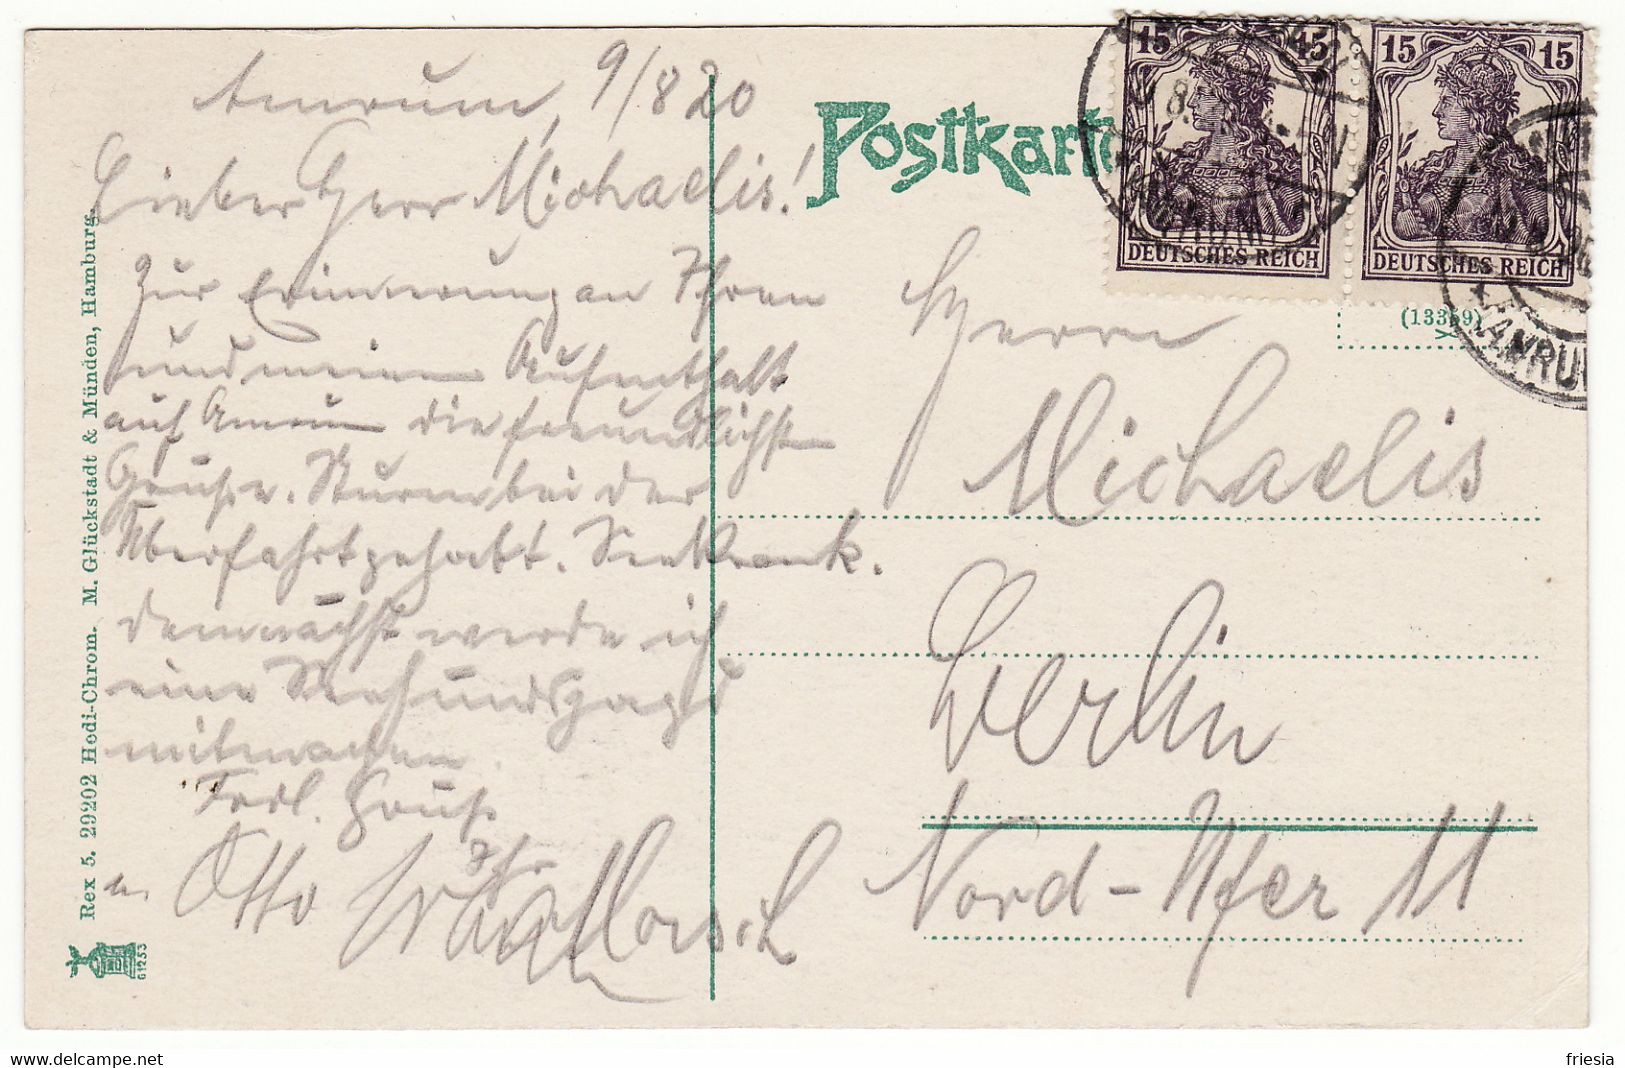 Amrum, 9/8 20
Lieber Herr Michaelis!
Zur Erinnerung an Ihren
und meinen Aufenthalt
auf Amrum die freundlichsten
Grüsse. Sturm bei der
Überfahrt gehabt. Seekrank.
demnächst werde ich
eine Seehundsjagd
mitmachen.
Frdl. Gruß
Ihr
u. Otto
Postkarte
15 15
DEUTSCHES REICH
15 15
DEUTSCHES REICH
(13359)
AMRUM
Herrn
Michaelis
Berlin
Nord-Ufer 11
Rex 5. 29202 Hedi-Chrom. M. Glückstadt & Münden, Hamburg.
G1253
friesia